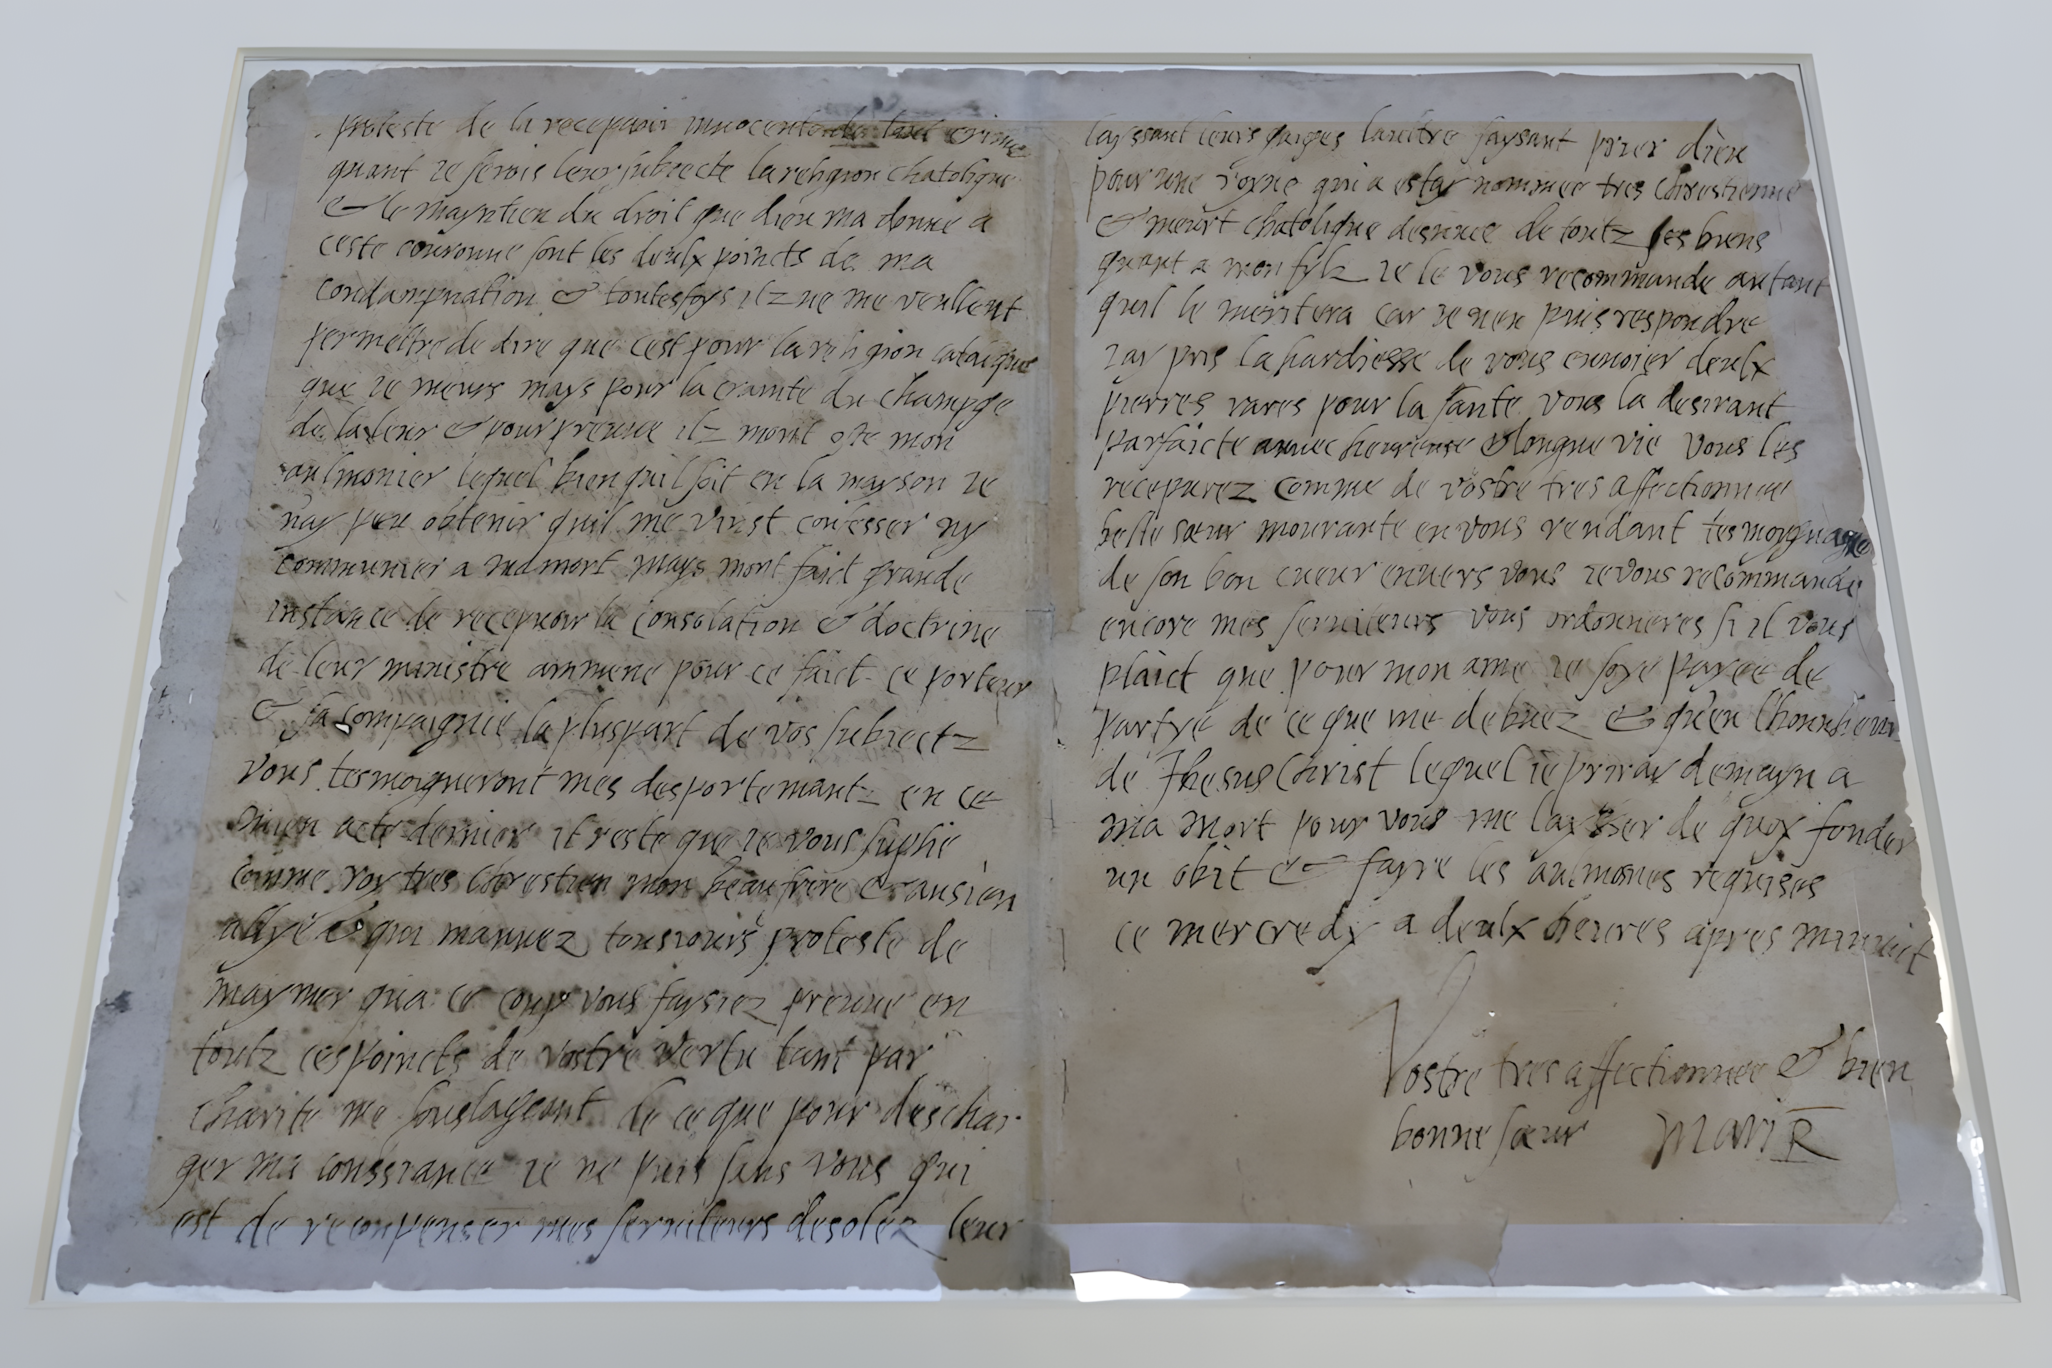 proteste de la recepvoir innocente de tout crime
quant ie serois leur subiecte la religion chatolique
& le mayntien du droit que dieu ma donne a
ceste couronne sont les deulx poincts de ma
condampnation & toutesfoys ilz ne me veullent
permettre de dire que cest pour la religion catolique
que ie meurs mays pour la crainte du champge
de la leur & pour preuue ilz mont oste mon
aulmonier lequel bien quil soit en la mayson ie
nay peu obtenir quil me vinst confesser ny
communier a ma mort mays mont faict grande
instance de recepvoir la consolation & doctrine
de leur ministre ammene pour ce faict ce porteur
& sa compaignie la pluspart de vos subiectz
vous tesmoigneront mes desportemantz en ce
mien acte dernier il reste que ie vous suplie
comme roy tres chrestien mon beau frere & ansien
allye & qui mauuez tousiours proteste de
maymer qua ce coup vous faysiez preuue en
toutz ces poincts de vostre vertu tant par
charite me soulageant de ce que pour deschar
ger ma conssiance ie ne puis sans vous qui
est de reconpenser mes seruiteurs desolez leur
layssant leurs gaiges laultre faysant prier dieu
pour une royne qui a estay nommee tres chrestienne
& meurt chatolique desnuee de toutz ses biens
quant a mon fylz ie le vous recommande autant
quil le meritera car ie nen puis respondre
iay pris la hardiesse de vous enuoier deulx
pierres rares pour la sante vous la desirant
parfaicte auuec heureuse & longue vie vous les
recepurez comme de vostre tres affectionnee
belle sœur mourante en vous rendant tesmoygnasge
de son bon cueur enuers vous ie vous recommande
encore mes seruiteurs vous ordonneres si il vous
plaict que pour mon ame ie soye payee de
partye de ce que me debuez & quen lhonnheur
de Jhesus Christ lequel ie priray demayn a
ma mort pour vous me laysser de quoy fonder
un obit & fayre les aulmosnes requises
ce mercredy a deulx heures apres minuict
Vostre tres affectionnee & bien
bonne sœur Mari R